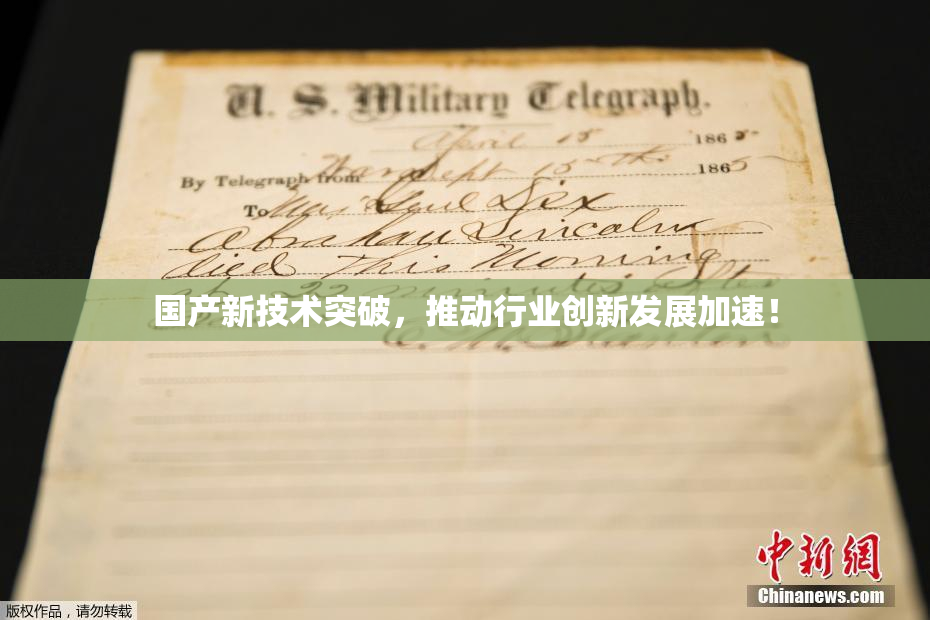 U. S. Military Telegraph.
April 15 1865
By Telegraph from War Dept 15th 1865
To Maj Genl Dix
Abraham Lincoln
died This Morning
at 22 minutes after
国产新技术突破，推动行业创新发展加速！
E. M. Stanton
中新网
Chinanews.com
版权作品，请勿转载